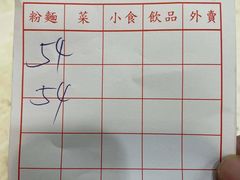 粉麵 菜 小食 飲品 外賣
54
54